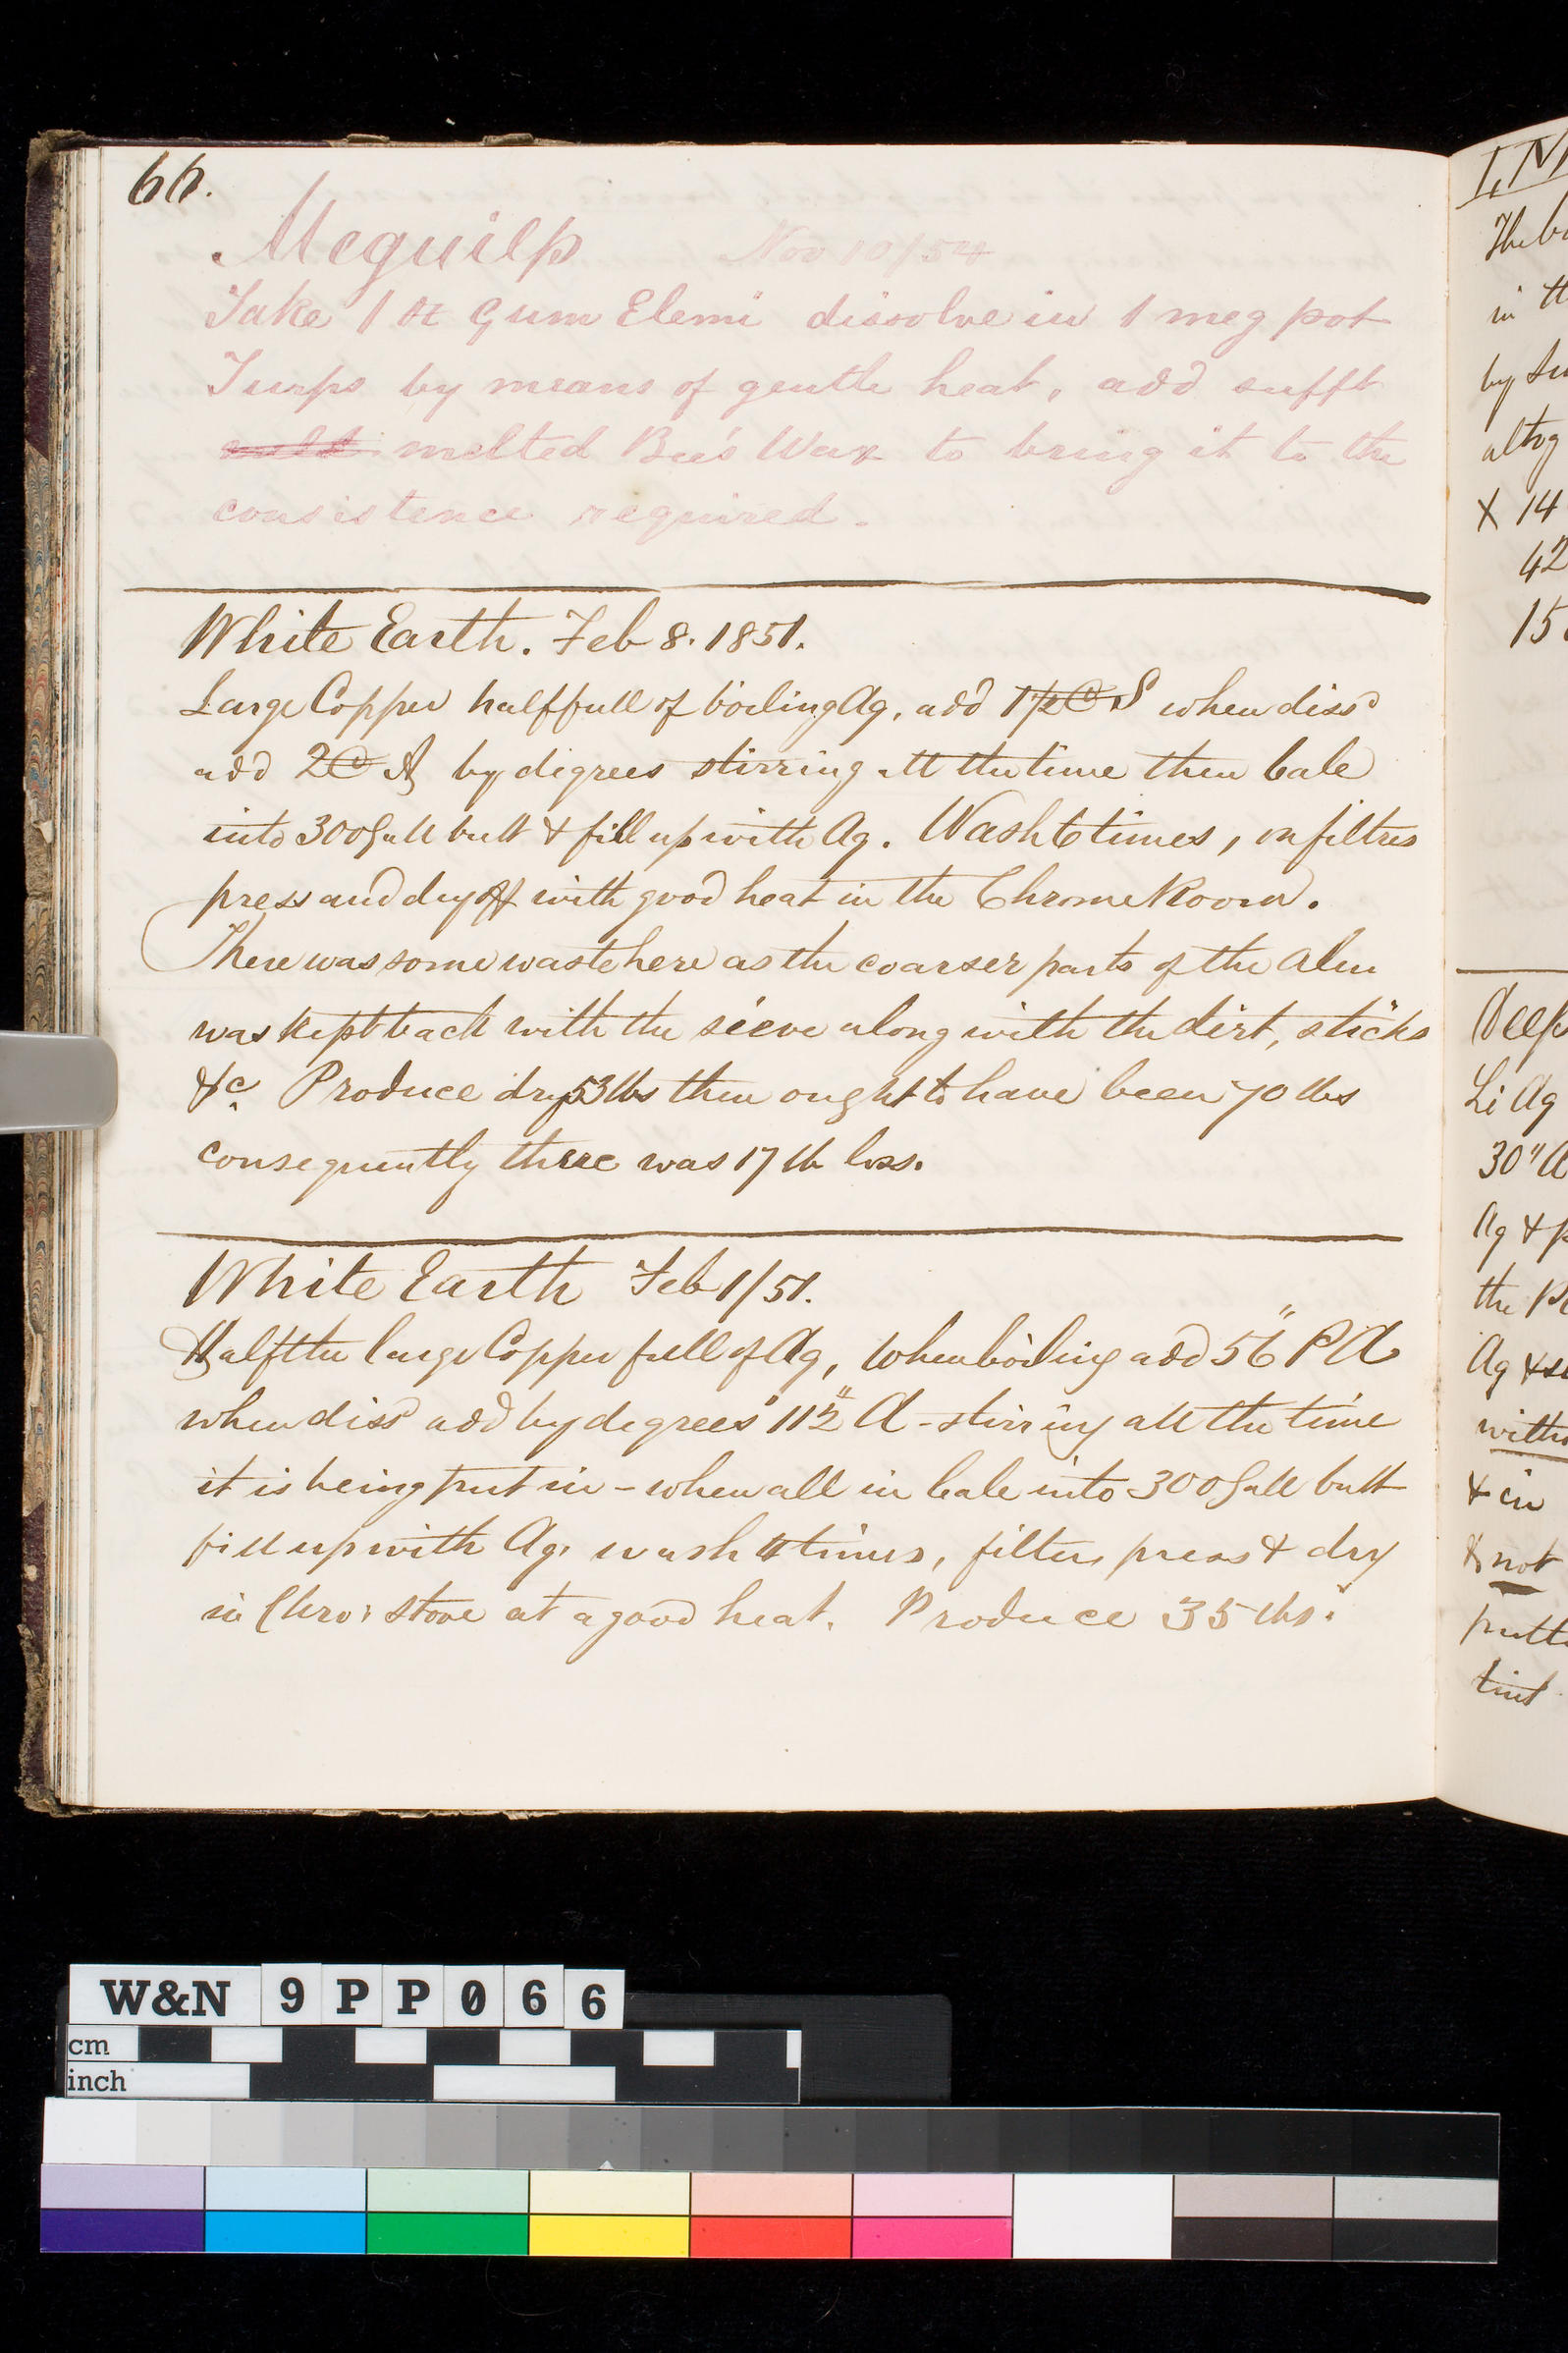 66.
Meguilp Nov 10/54
Take 1 lb Gum Elemi dissolve in 1 meg pot
Turps by means of gentle heat, add sufft
melt melted Bee's Wax to bring it to the
consistence required.
White Earth. Feb 8. 1851.
Large Copper half full of boiling Aq, add 1½ C S when dissd
add 2 C A by degrees stirring all the time then bale
into 300 Gall butt & fill up with Aq. Wash 6 times, on filtres
press and dry off with good heat in the Chrome Room.
There was some waste here as the coarser parts of the Alm
was kept back with the sieve along with the dirt, sticks
&c. Produce dry 53 lbs then ought to have been 70 lbs
consequently there was 17 lb loss.
White Earth Feb 1/51.
Half the large Copper full of Aq, when boiling add 56" P A
when dissd add by degrees 112" A - stirring all the time
it is being put in - when all in bale into 300 Gall butt
fill up with Aq. wash 4 times, filter, press & dry
in Chro: stove at a good heat. Produce 35 lbs.
in th
X 14
42
15
Deep
Li Aq
30" A
Aq & p
Aq & st
& in
& not
tint
W&N 9PP066
cm
inch